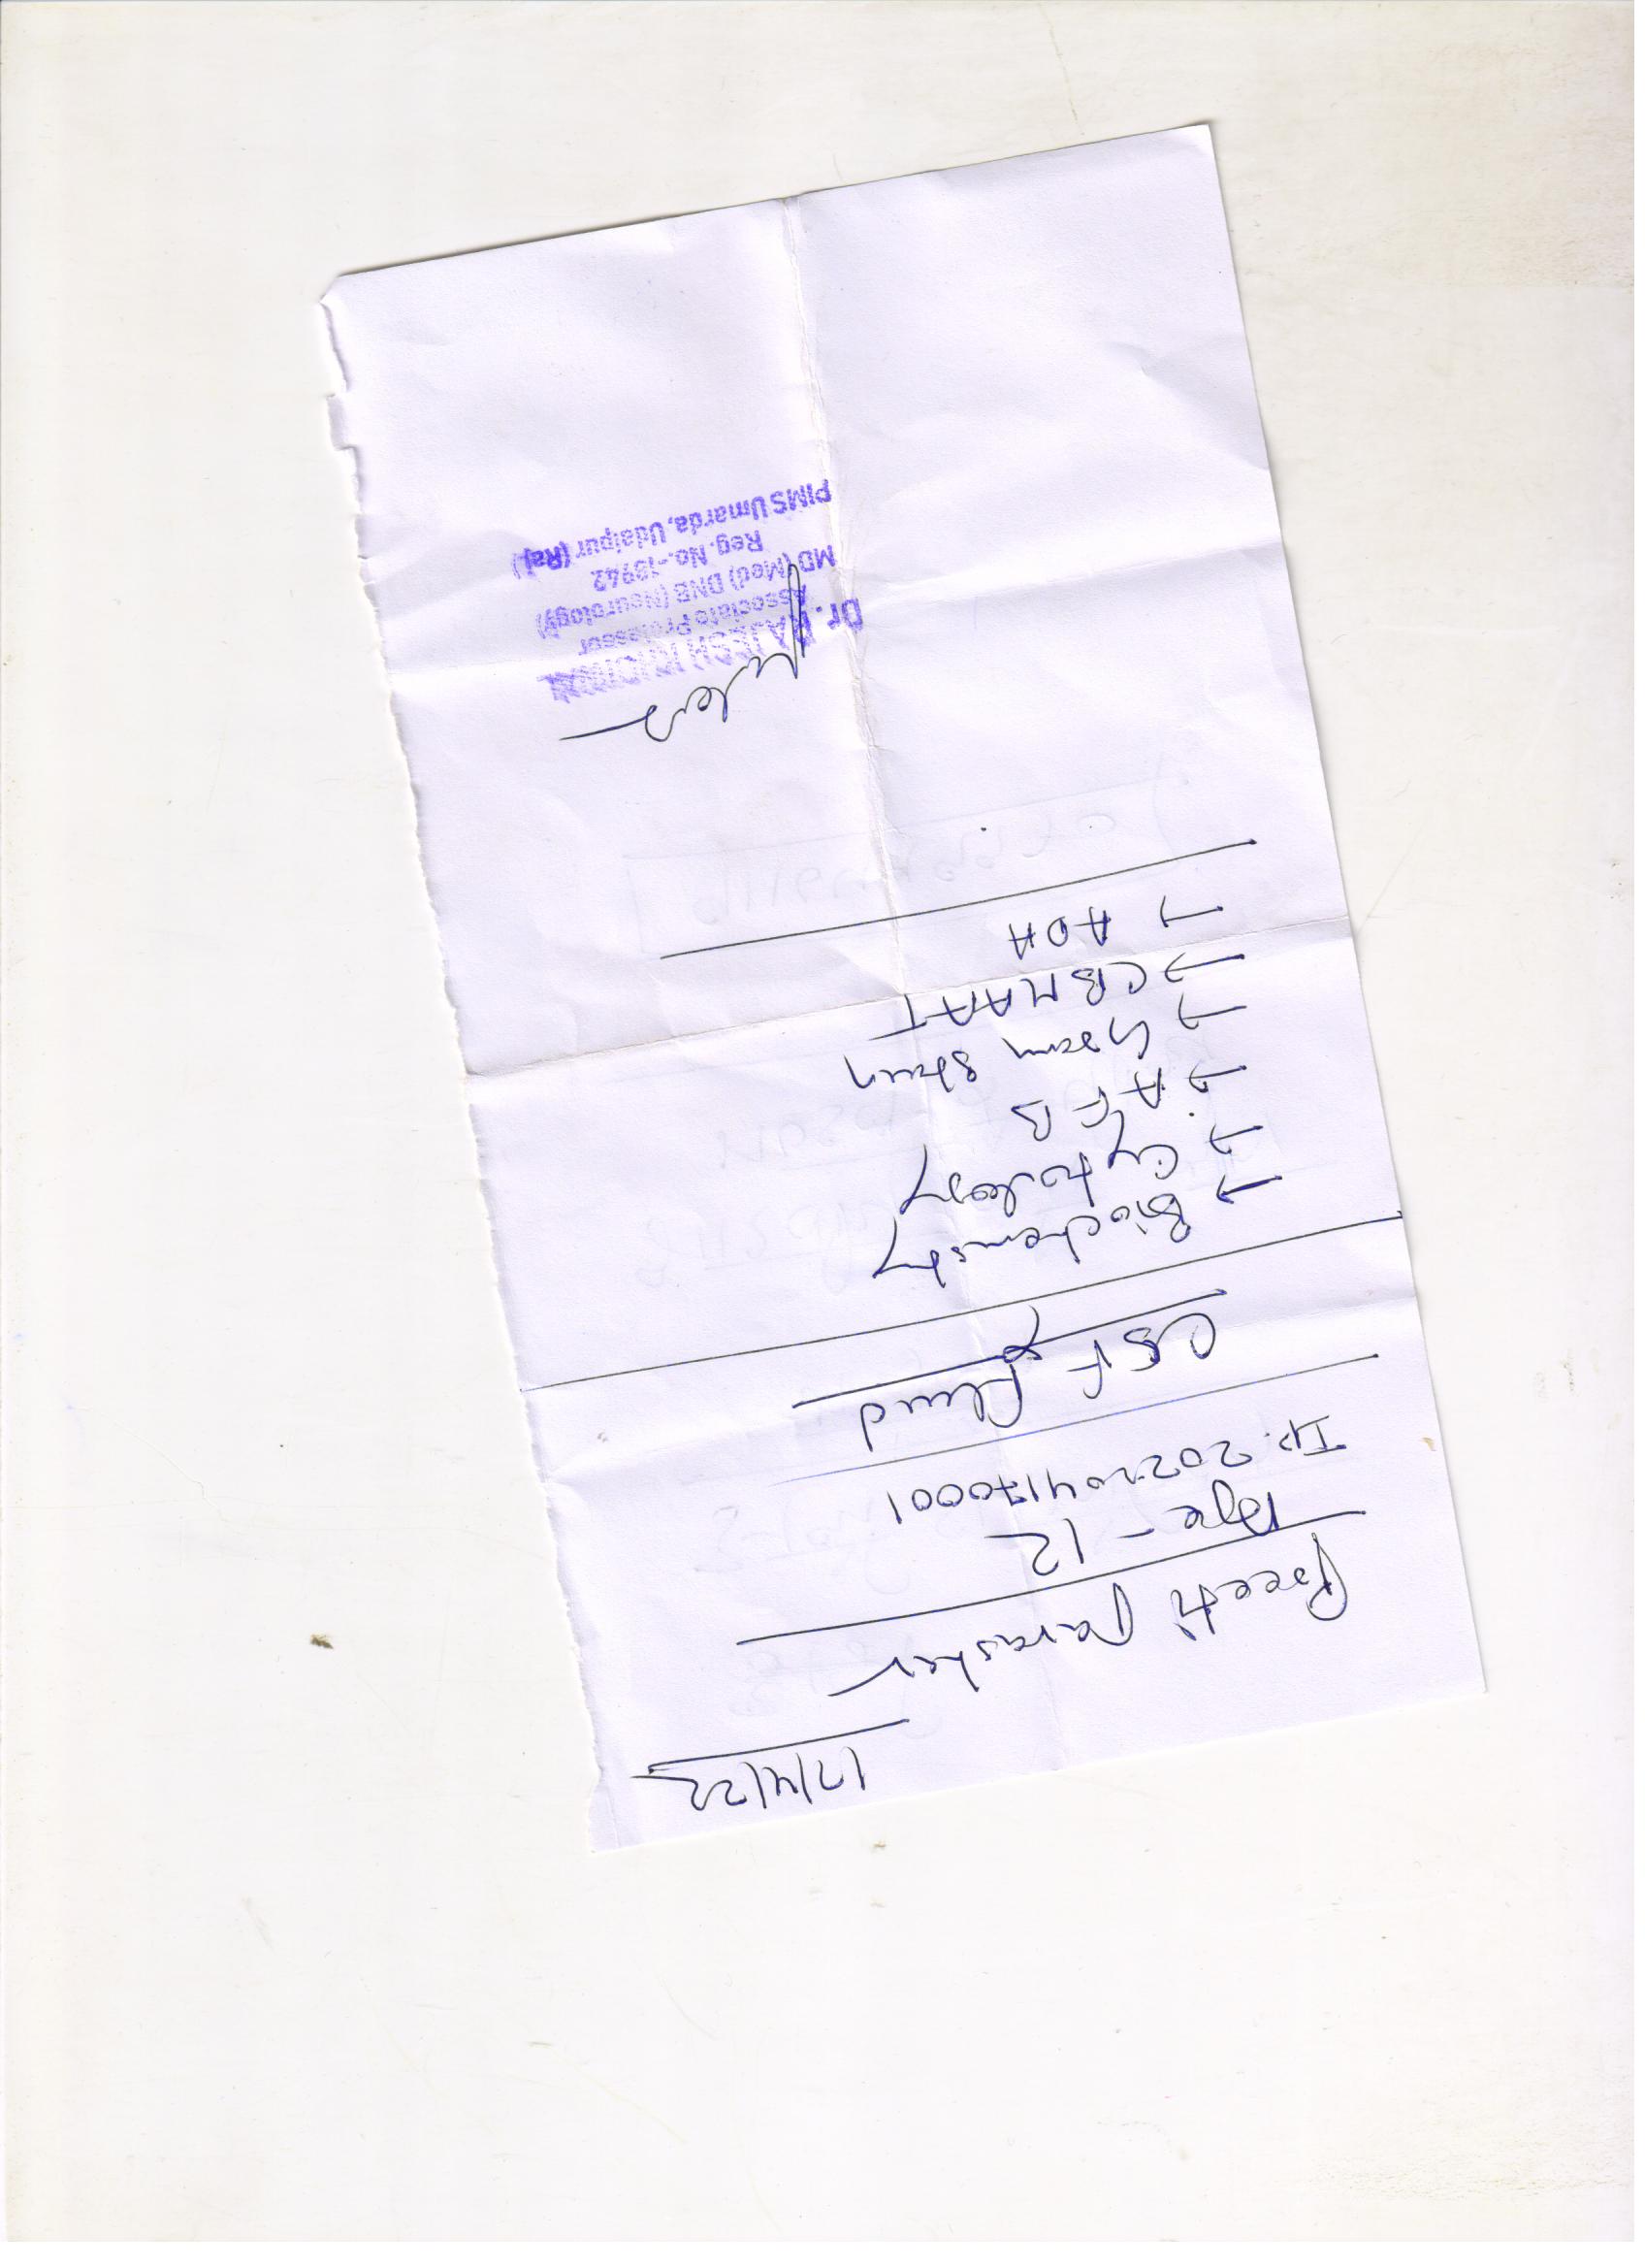 17/4/22
Preeti Parasher
Age - 12
IP. 202204170001
CSF fluid
→ Biochemistry
→ Cytology
→ AFB
→ Gram Stain
→ CBNAAT
→ ADA
Dr. RAJESH
Associate Professor
MD (Med) DNB (Neurology)
Reg. No.-18942
PIMS Umarda, Udaipur (Raj.)